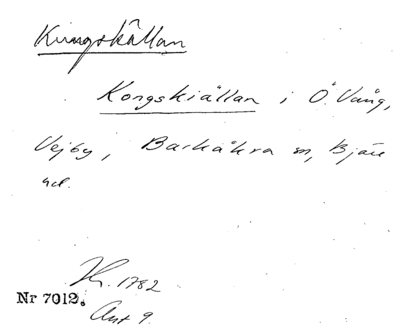 Kungskällan
Kongskiällan i Ö. Vång,
Vejby, Barkåkra sn, Bjäre
hd.
Kr. 1782
Nr 7012.
Akt 9.